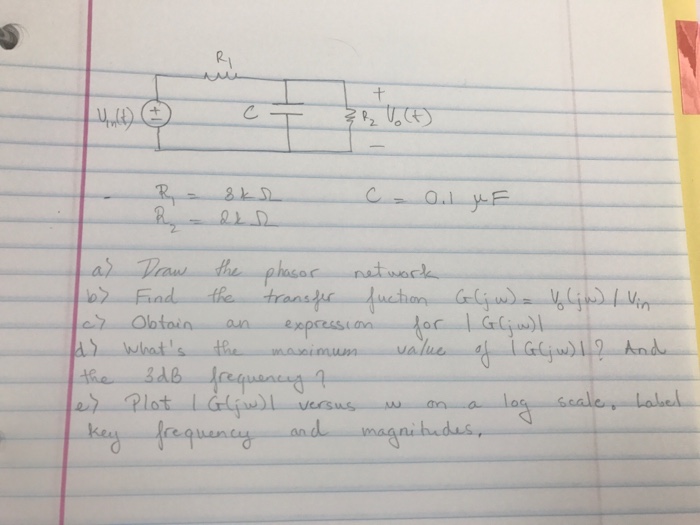 R1
+
Vin(t) + C R2 Vo(t)
-
R1 = 8kΩ C = 0.1 μF
R2 = 2kΩ
a) Draw the phasor network
b) Find the transfer fuction G(jω) = Vo(jω) / Vin
c) Obtain an expression for |G(jω)|
d) What's the maximum value of |G(jω)|? And
the 3dB frequency?
e) Plot |G(jω)| versus ω on a log scale. Label
key frequency and magnitudes.